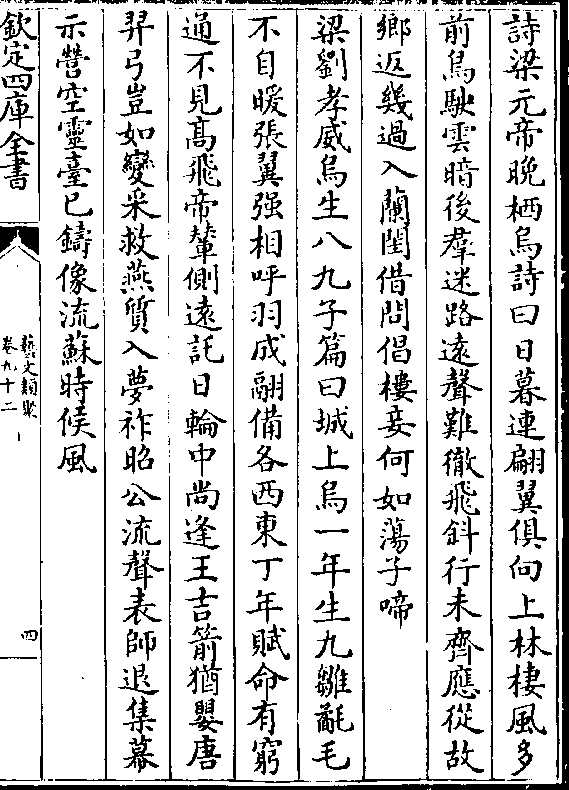 詩梁元帝晩栖烏詩曰日暮連翩翼俱向上林棲風多
前烏駛雲暗後羣迷路遠聲難徹飛斜行未齊應從故
鄉返幾過入蘭閨借問倡樓妾何如蕩子啼
梁劉孝威烏生八九子篇曰城上烏一年生九雛毻毛
不自暖張翼强相呼羽成翮備各西東丁年賦命有窮
通不見髙飛帝輦側遠託日輪中尚逢王吉箭猶嬰唐
羿弓豈如變采救燕質入夢祚昭公流聲表師退集幕
示營空靈臺已鑄像流蘇時候風
欽定四庫全書
藝文類聚
卷九十二
四